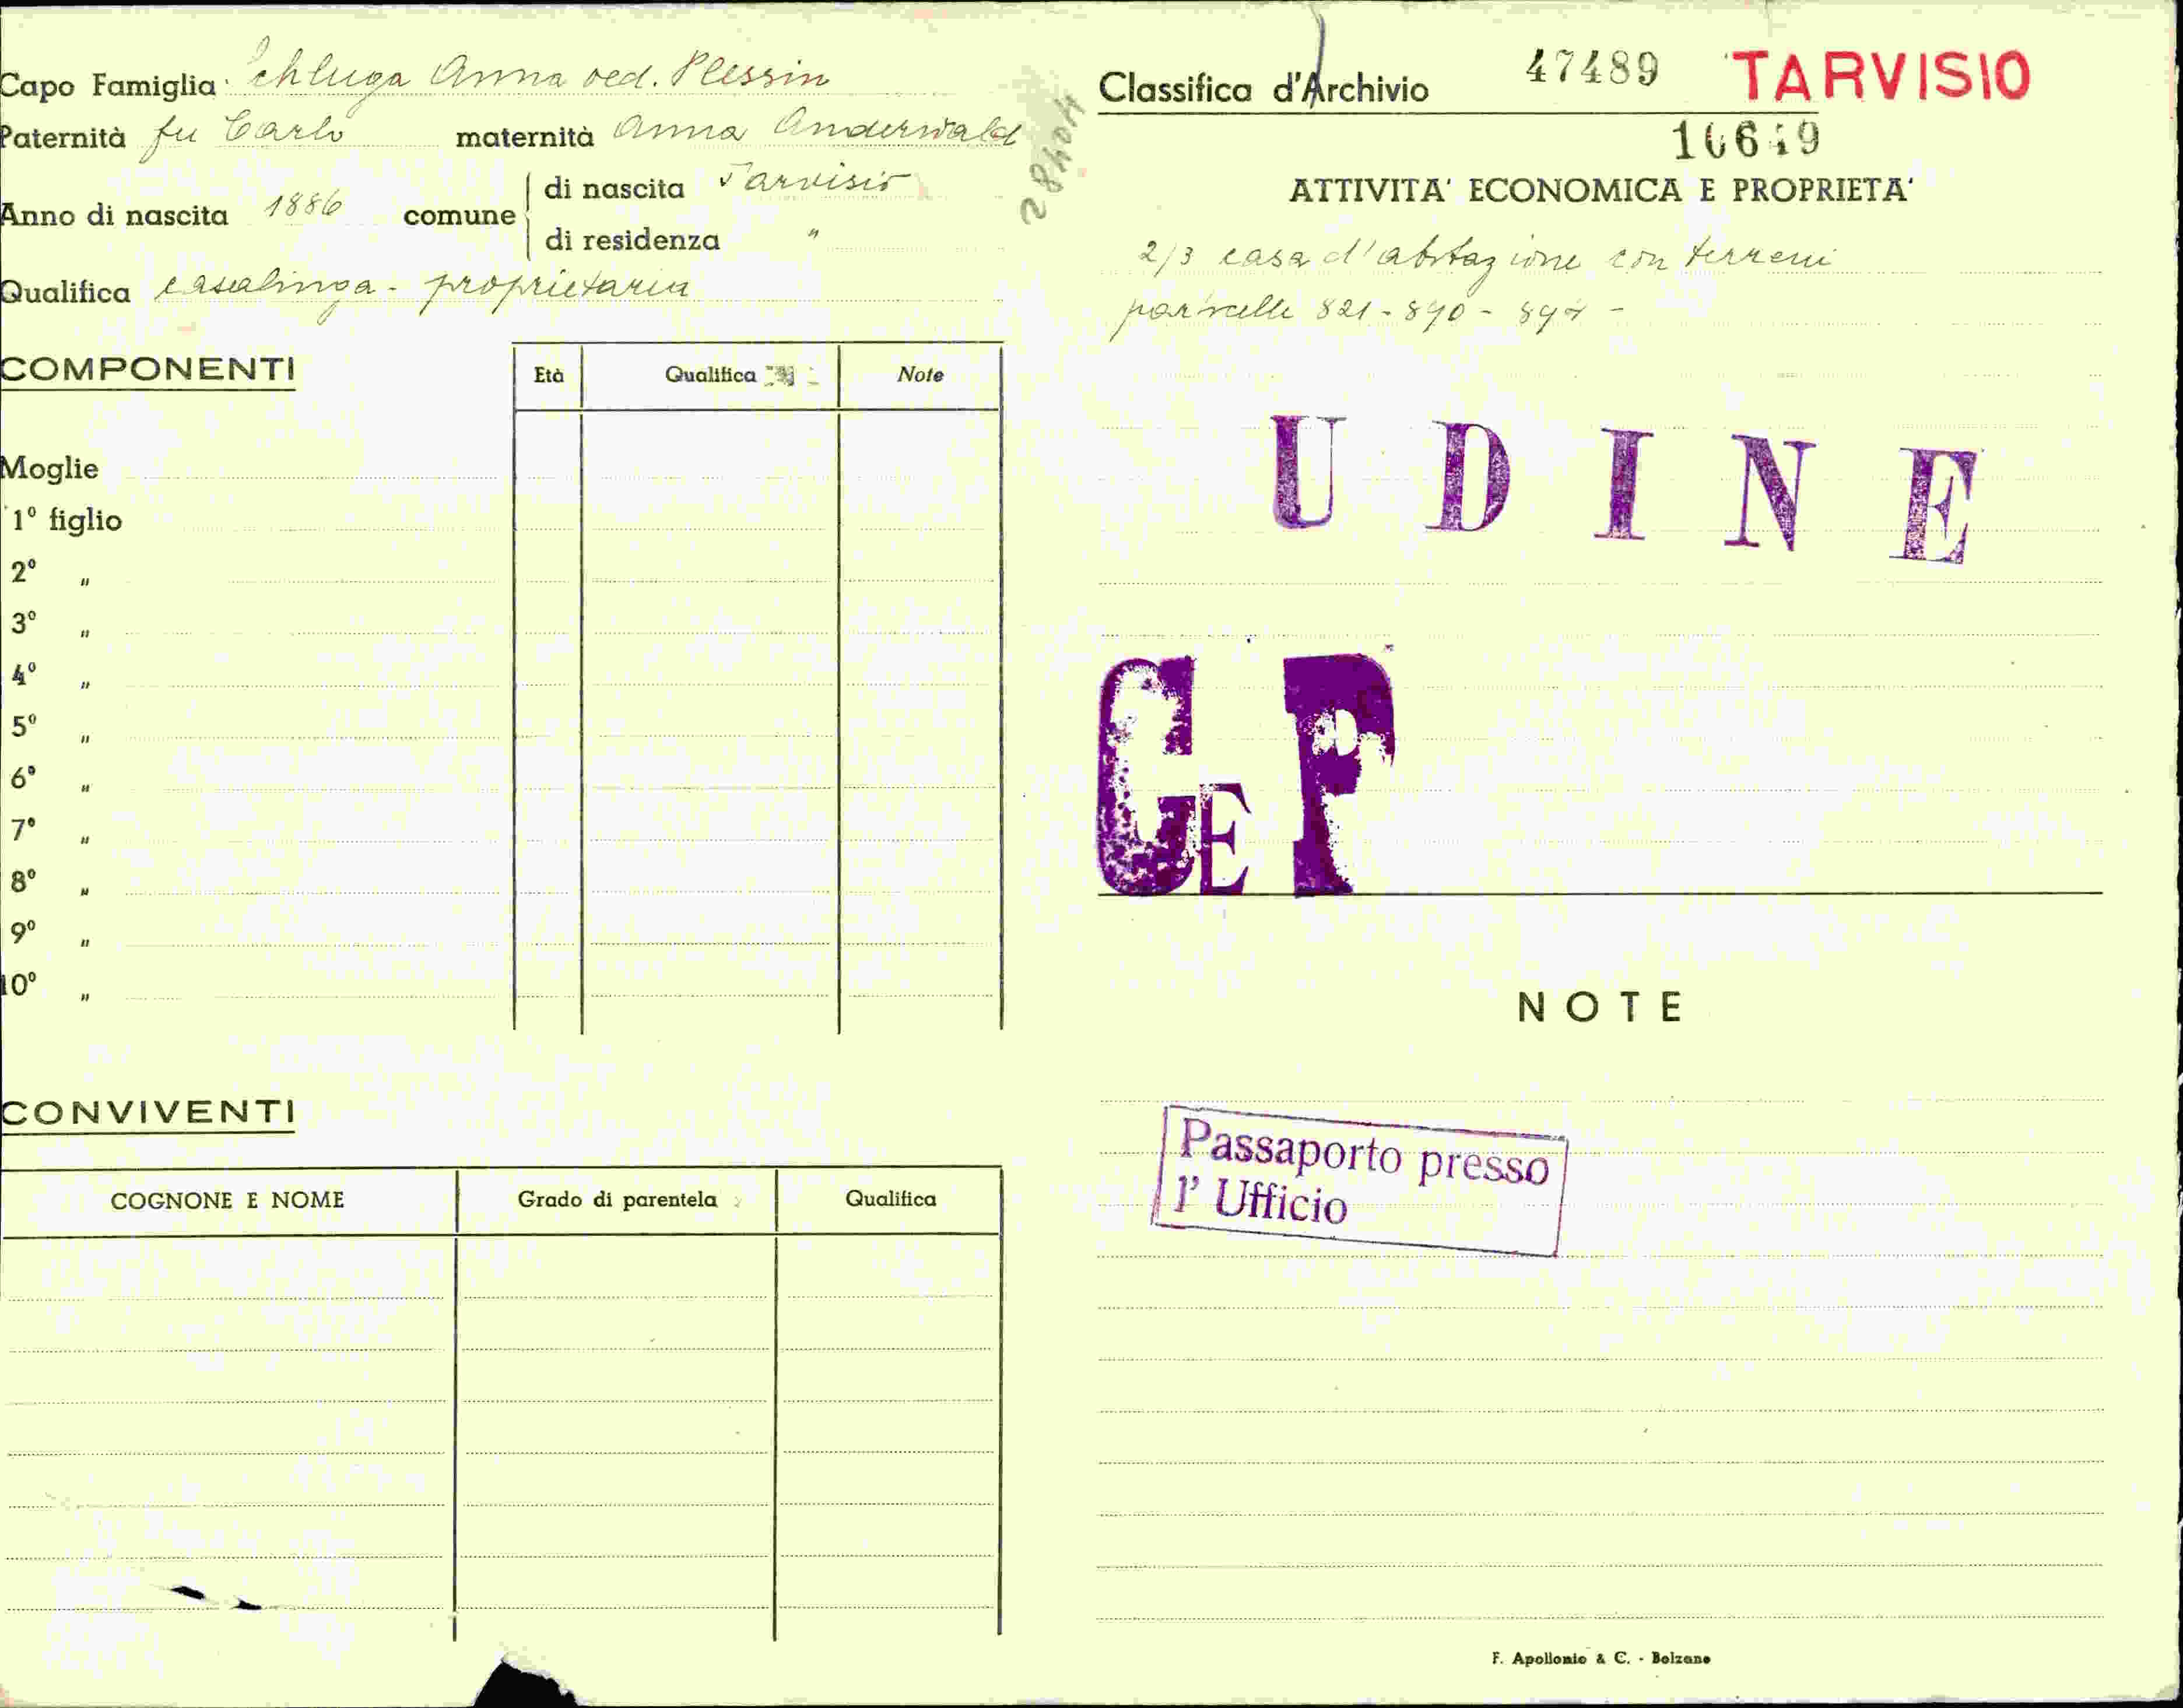 Capo Famiglia Schluga Anna ved. Plessin
Paternità fu Carlo maternità Anna Anderwald
Anno di nascita 1886 comune di nascita Tarvisio
di residenza "
Qualifica casalinga - proprietaria
28404
COMPONENTI
Età Qualifica Note
Moglie
1º figlio
2º "
3º "
4º "
5º "
6º "
7º "
8º "
9º "
10º "
CONVIVENTI
COGNONE E NOME Grado di parentela Qualifica
Classifica d'Archivio 47489 TARVISIO
ATTIVITA' ECONOMICA E PROPRIETA'
2/3 casa d'abitazione con terreni
particelle 821 - 890 -
UDINE
GEP
NOTE
Passaporto presso
l' Ufficio
F. Apollonio & C. - Bolzano